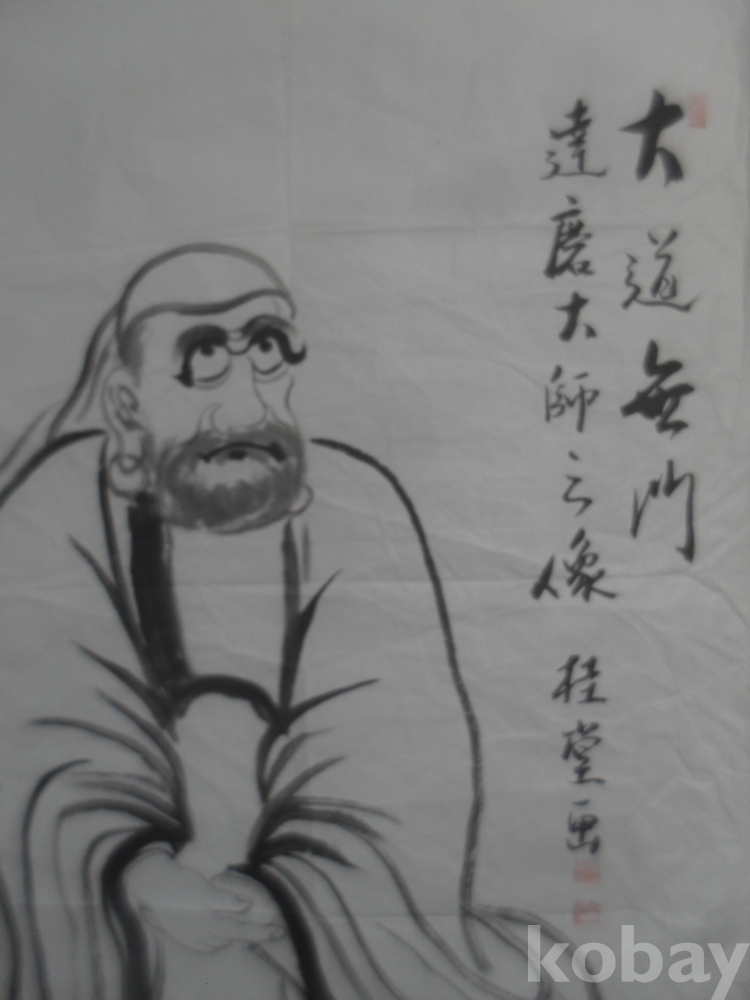 大道無門
達磨大師之像 桂堂画
kobay